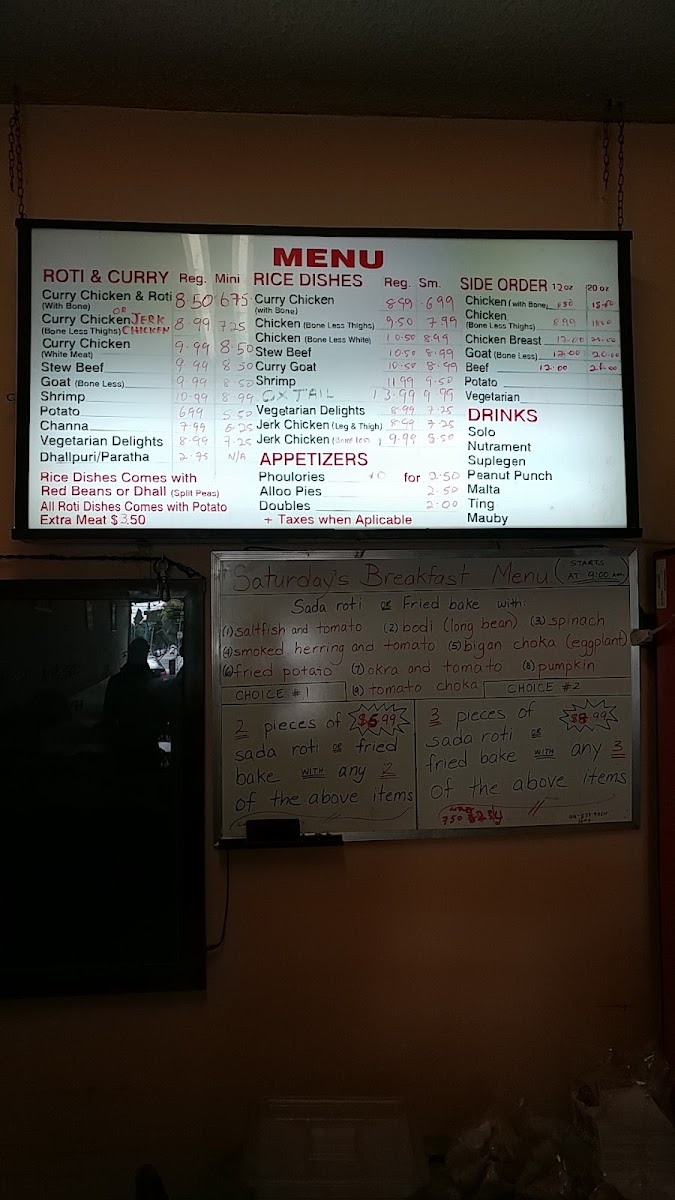 MENU
ROTI & CURRY Reg. Mini
Curry Chicken & Roti 8.50 6.75
(With Bone)
OR
Curry Chicken JERK 8.99 7.25
(Bone Less Thighs) CHICKEN
Curry Chicken 9.99 8.50
(White Meat)
Stew Beef 9.99 8.50
Goat (Bone Less) 9.99 8.50
Shrimp 10.99 8.99
Potato 6.99 5.50
Channa 7.99 6.25
Vegetarian Delights 8.99 7.25
Dhallpuri/Paratha 2.75 N/A
Rice Dishes Comes with
Red Beans or Dhall (Split Peas)
All Roti Dishes Comes with Potato
Extra Meat $3.50
RICE DISHES Reg. Sm.
Curry Chicken 8.99 6.99
(with Bone)
Chicken (Bone Less Thighs) 9.50 7.99
Chicken (Bone Less White) 10.50 8.99
Stew Beef 10.50 8.99
Curry Goat 10.50 8.99
Shrimp 11.99 9.50
OXTAIL 13.99 9.99
Vegetarian Delights 8.99 7.25
Jerk Chicken (Leg & Thigh) 8.99 7.25
Jerk Chicken (Bone less) 9.99 8.50
APPETIZERS
Phoulories 10 for 2.50
Alloo Pies 2.50
Doubles 2.00
+ Taxes when Aplicable
SIDE ORDER 12 oz 20 oz
Chicken (with Bone)
Chicken 8.99
(Bone Less Thighs)
Chicken Breast 12.00
Goat (Bone Less) 12.00 20.00
Beef 12.00
Potato
Vegetarian
DRINKS
Solo
Nutrament
Suplegen
Peanut Punch
Malta
Ting
Mauby
Saturday's Breakfast Menu (STARTS AT 9:00 AM)
Sada roti or Fried bake with:
(1) saltfish and tomato (2) bodi (long bean) (3) spinach
(4) smoked herring and tomato (5) bigan choka (eggplant)
(6) fried potato (7) okra and tomato (8) pumpkin
(9) tomato choka
CHOICE #1
2 pieces of $6.99
sada roti or fried
bake WITH any 2
of the above items
CHOICE #2
3 pieces of $8.99
sada roti or
fried bake WITH any 3
of the above items